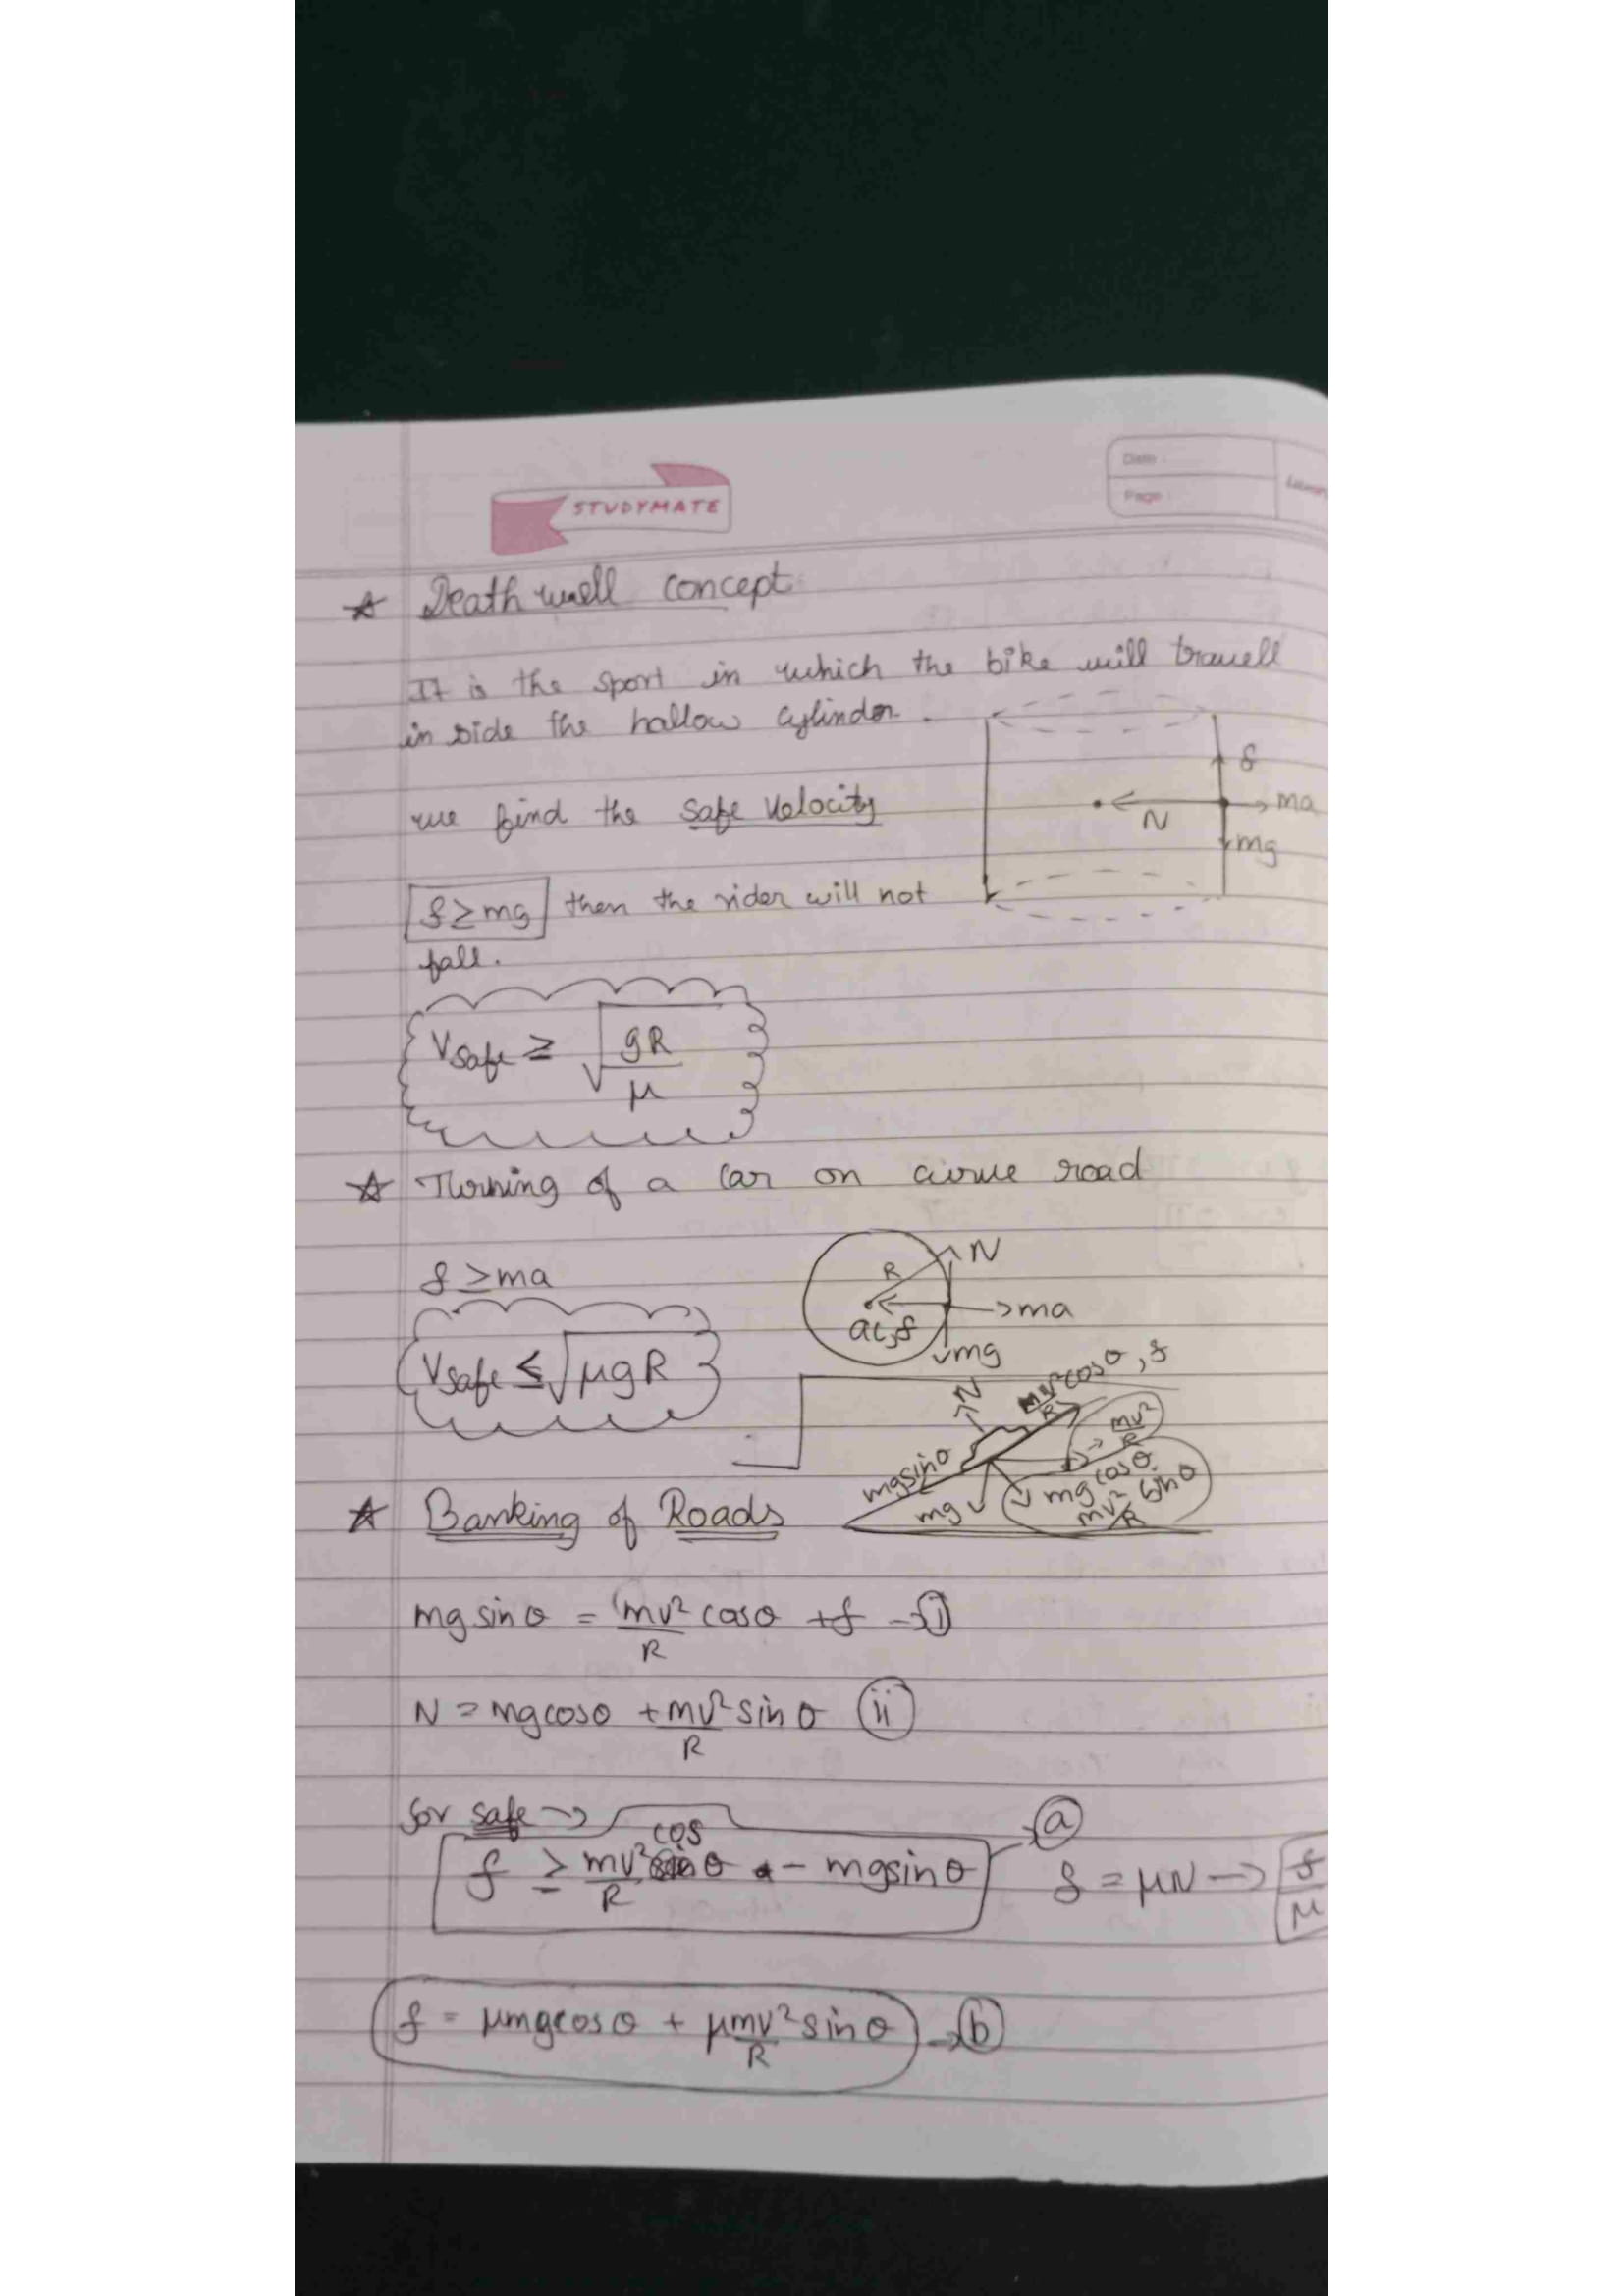 STUDYMATE
Date
Page
☆ Death well concept
It is the sport in which the bike will travell
in side the hallow cylinder.
f
N
ma
mg
we find the safe velocity
f ≥ mg then the rider will not
fall.
Vsafe ≥ √(gR/μ)
☆ Turning of a car on curve road
f ≥ ma
R
N
ac, f
ma
mg
Vsafe ≤ √μgR
N
mv²/R cosθ, f
mv²/R
mgsinθ
mg
mg cosθ
mv²/R sinθ
☆ Banking of Roads
mg sinθ = mv²/R cosθ + f → i
N = mgcosθ + mv²/R sinθ ii
for safe →
f ≥ mv²/R cosθ - mgsinθ → a
f = μN → f/μ
f = μmgcosθ + μmv²/R sinθ → b